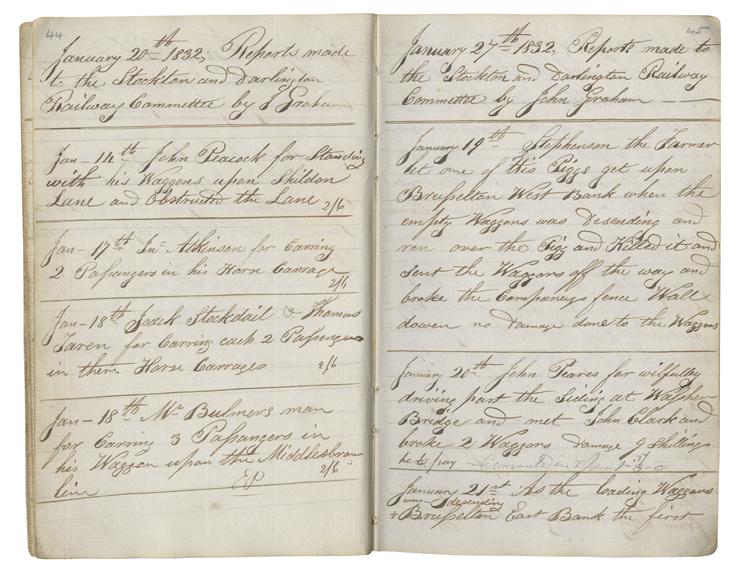 44
January 20th 1832, Reports made
to the Stockton and Darlington
Railway Committee by J Graham
Jan - 14th John Peacock for Standing
with his Waggons upon Shildon
Lane and Obstructed the Lane 2/6
Jan - 17th Jno Atkinson for Carring
2 Passangers in his Horse Carrage
2/6
Jan - 18th Jack Stockdail & Thomas
Taren for Carring each 2 Passengers
in there Horse Carrages 2/6
Jan - 18th Mr Bulmers man
for Carring 3 Passangers in
his Waggon upon the Middlesbrom
line 2/6
45
January 27th 1832, Reports made to
the Stockton and Darlington Railway
Committee by John Graham
January 19th Stephenson the Farmer
let one of this Piggs get upon
Brusselton West Bank when the
empty Waggons was desending and
ran over the Pigg and Killed it and
sent the Waggons off the way and
broke the Companeys fence Wall
dowen no damage done to the Waggons
January 20th John Peares for wilfulley
driving past the Siding at
Bridge and met John Clark and
broke 2 Waggons damage 9 Shillings
he to pay
January 21st As the loading Waggons
was desending
+ Brusselton East Bank the first